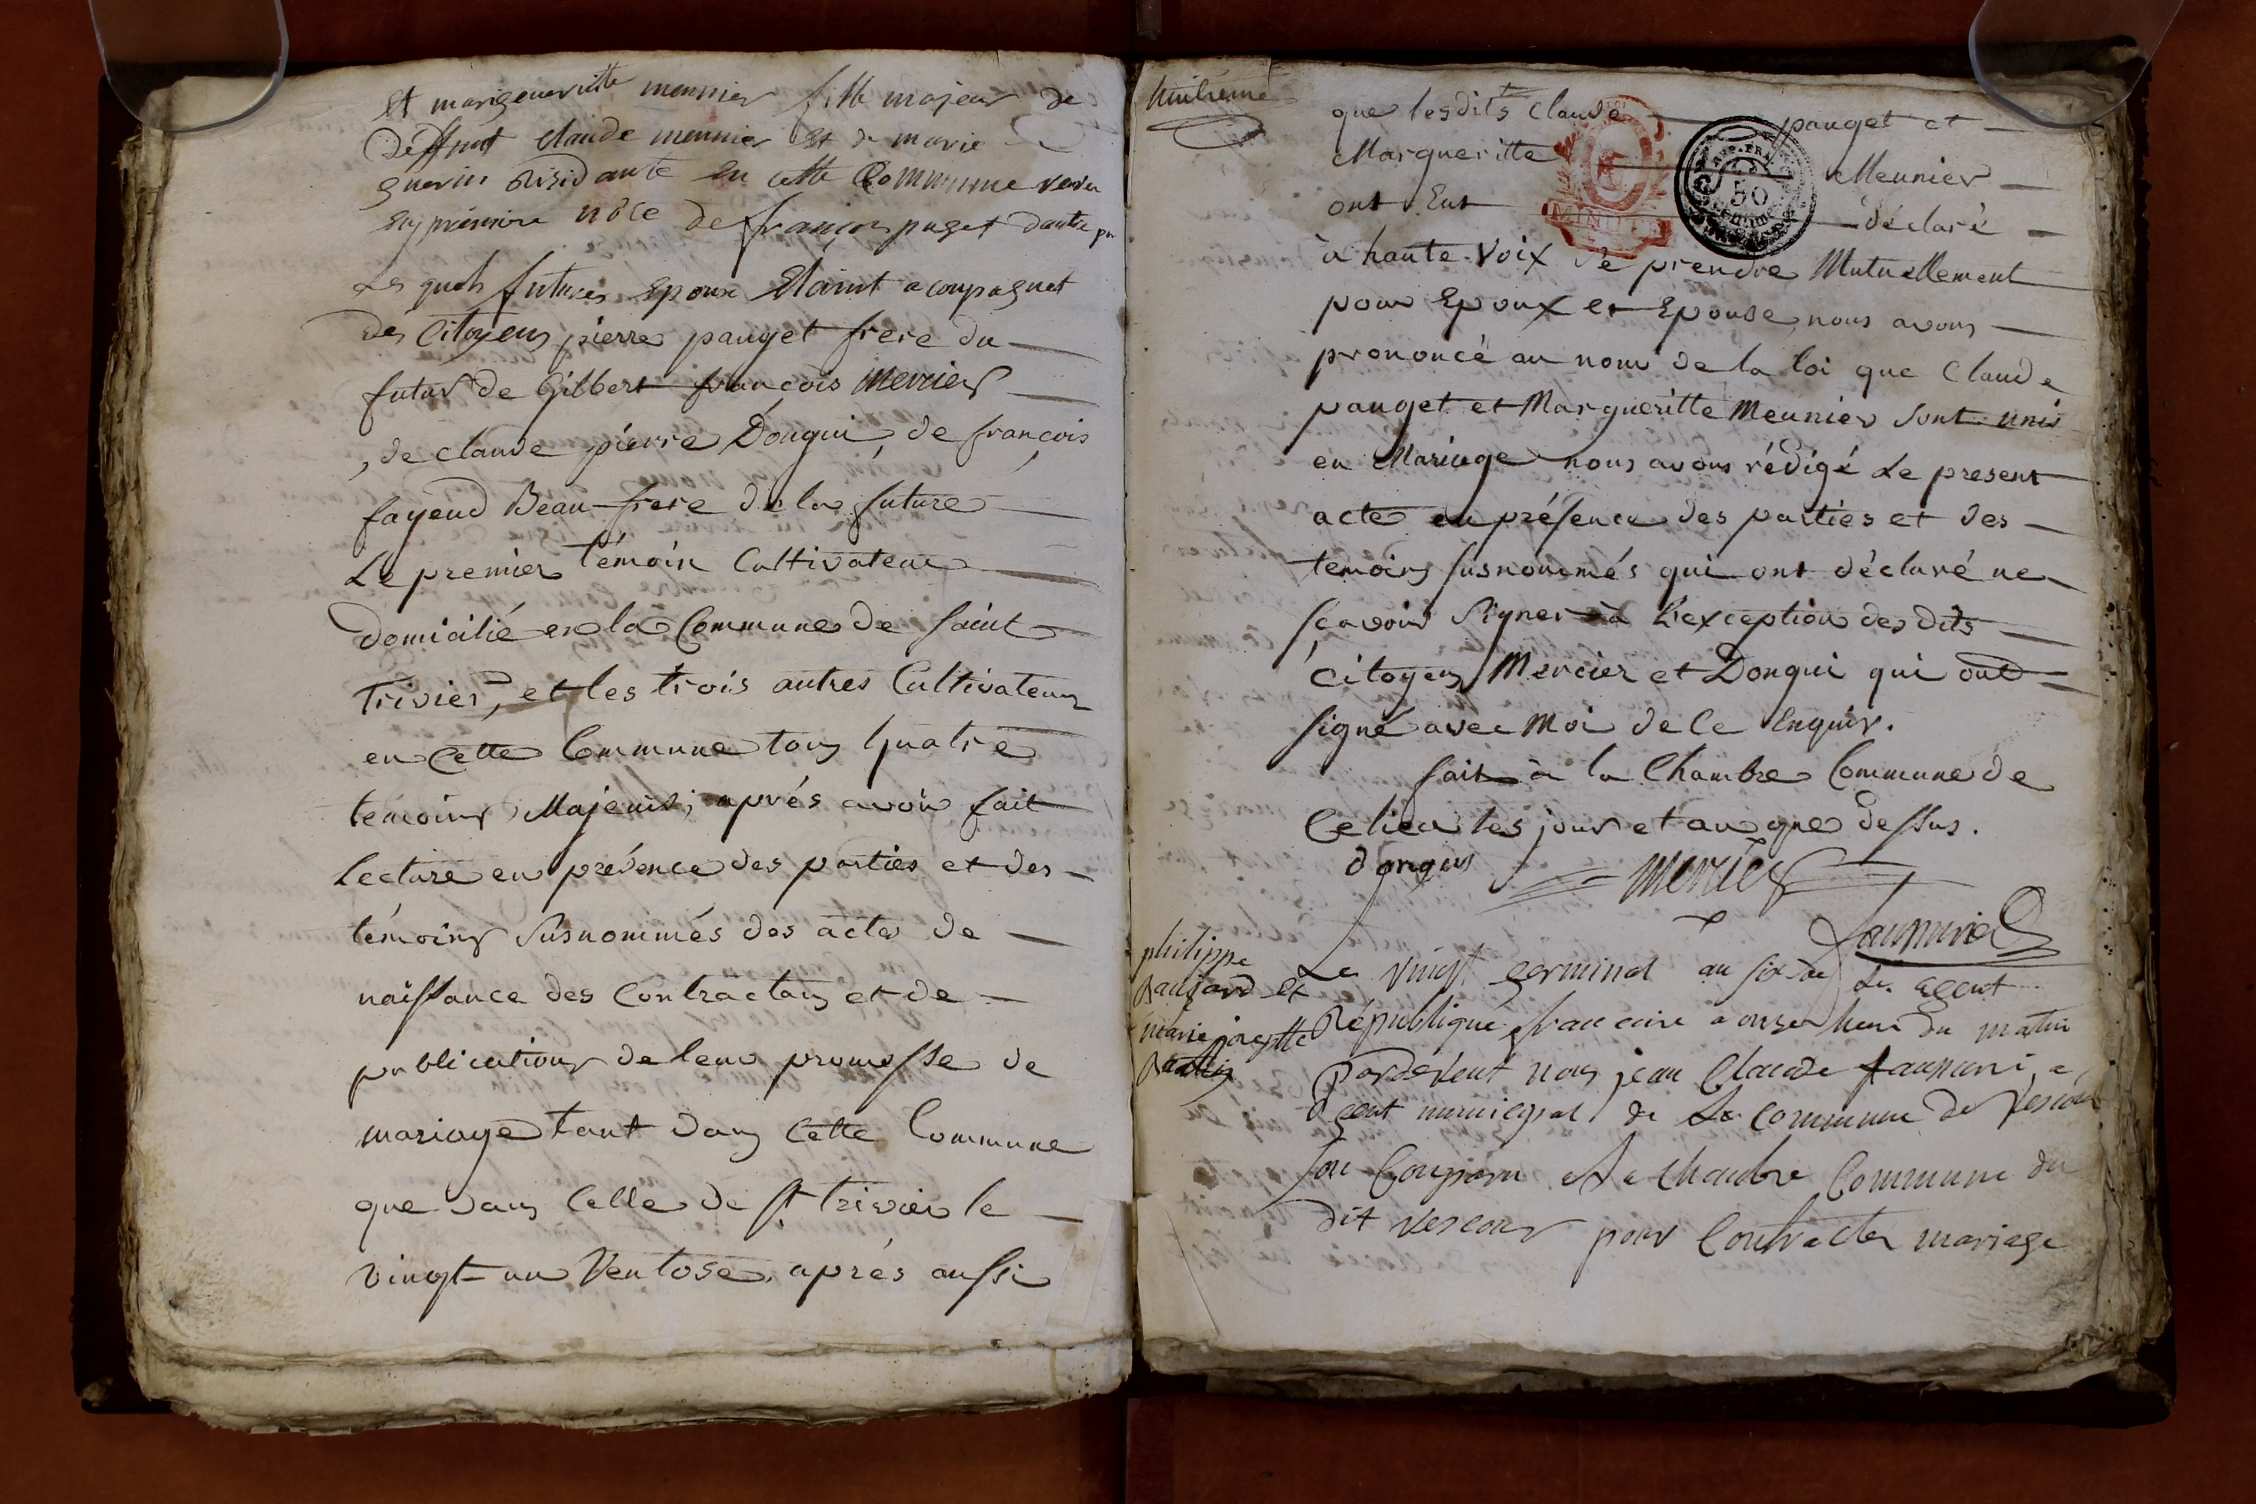 et margueuritte mennier fille majeur de
deffunt claude mennier et de marie
guerin residante en cette Commune veuve
en premiere noce de françois puget dautre par
Les quels futures Epoux Etaint acoupagnet
des Citoyens pierre pauget frere du
futur de Gilbert françois Mercier
, de claude pierre Donguis, de françois
fayeud Beau-frere de la future
Le premier témoin Cultivateur
domicilié en la Commune de saint
Trivier, et les trois autres Cultivateurs
en Cette Commune tous quatre
temoins Majeurs; aprés avoir fait
Lecture en présence des parties et des
témoins susnommés des actes de
naissance des Contractans et de
publications de leur promesse de
mariage tant dans Cette Commune
que dans Celle de st trivier le
vingt un Ventose, aprés aussi
huitieme
que lesdits Claude pauget et
Margueritte Meunier
50
MINUTE
ont Eut déclaré
à haute voix se prendre Mutuellement
pour Epoux et Epouse, nous avons
prononcé au nom de la loi que Claude
pauget et Margueritte Meunier sont unis
en Mariage nous avons rédigé Le present
acte en présence des parties et des
temoins susnommés qui ont déclaré ne
sçavoir signer à L'exception des dits
Citoyens Mercier et Donguis qui ont
signé avec Moi de Ce Enquis.
fait à la Chambre Commune de
Ce lieu les jour et an que dessus.
donguis Mercier
philippe
et
marie
Le vingt germinal an six de La agent
République francaise a onze heure du matin
Pardevent nous jean Claude a
gent municipal de La Commune de Vescour
son Comparu a La Chambre Commune du
dit Vescour pour Contracter mariage